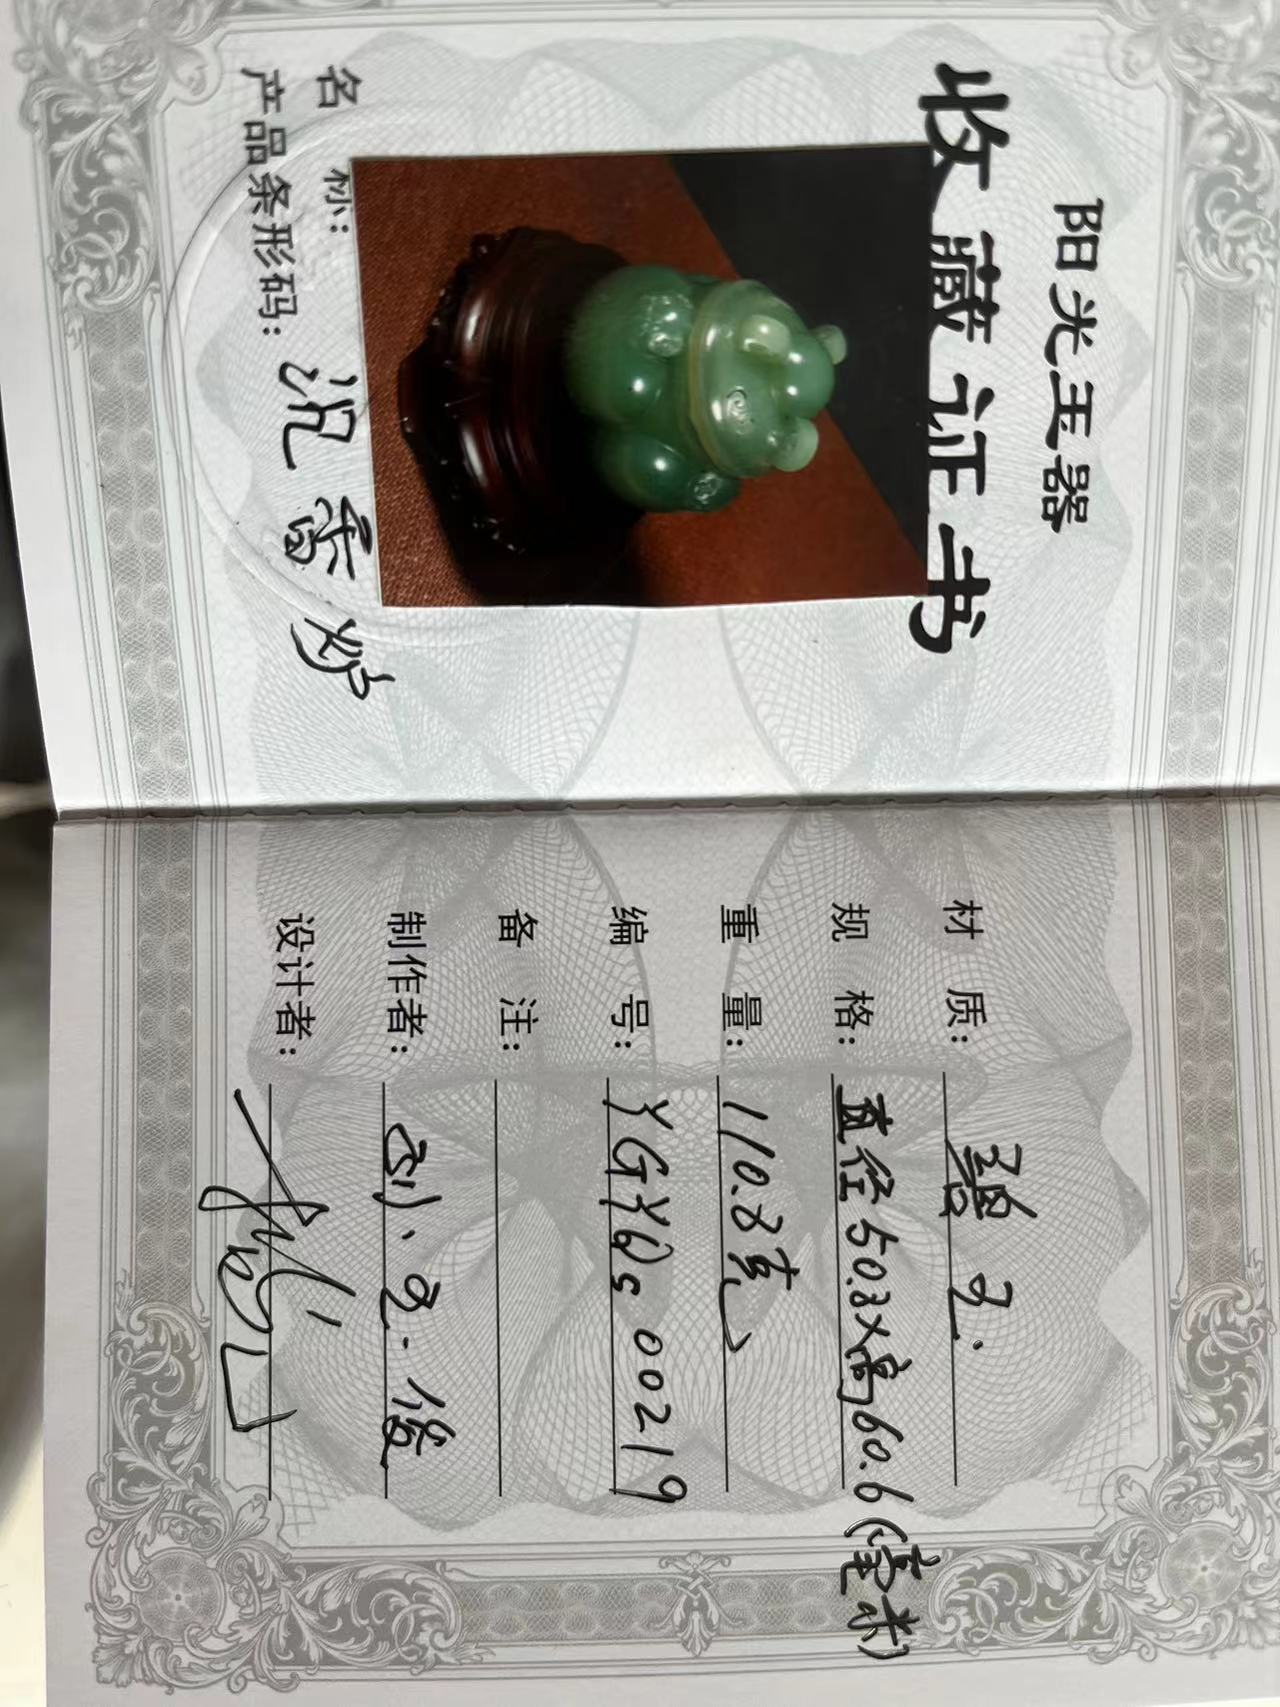 阳光玉器
收藏证书
名 称:
产品条形码: 沉香炉
材 质: 碧玉
规 格: 直径50.8×高60.6(毫米)
重 量: 110.8克
编 号: YGYQs00219
备 注:
制作者: 刘玉俊
设计者: